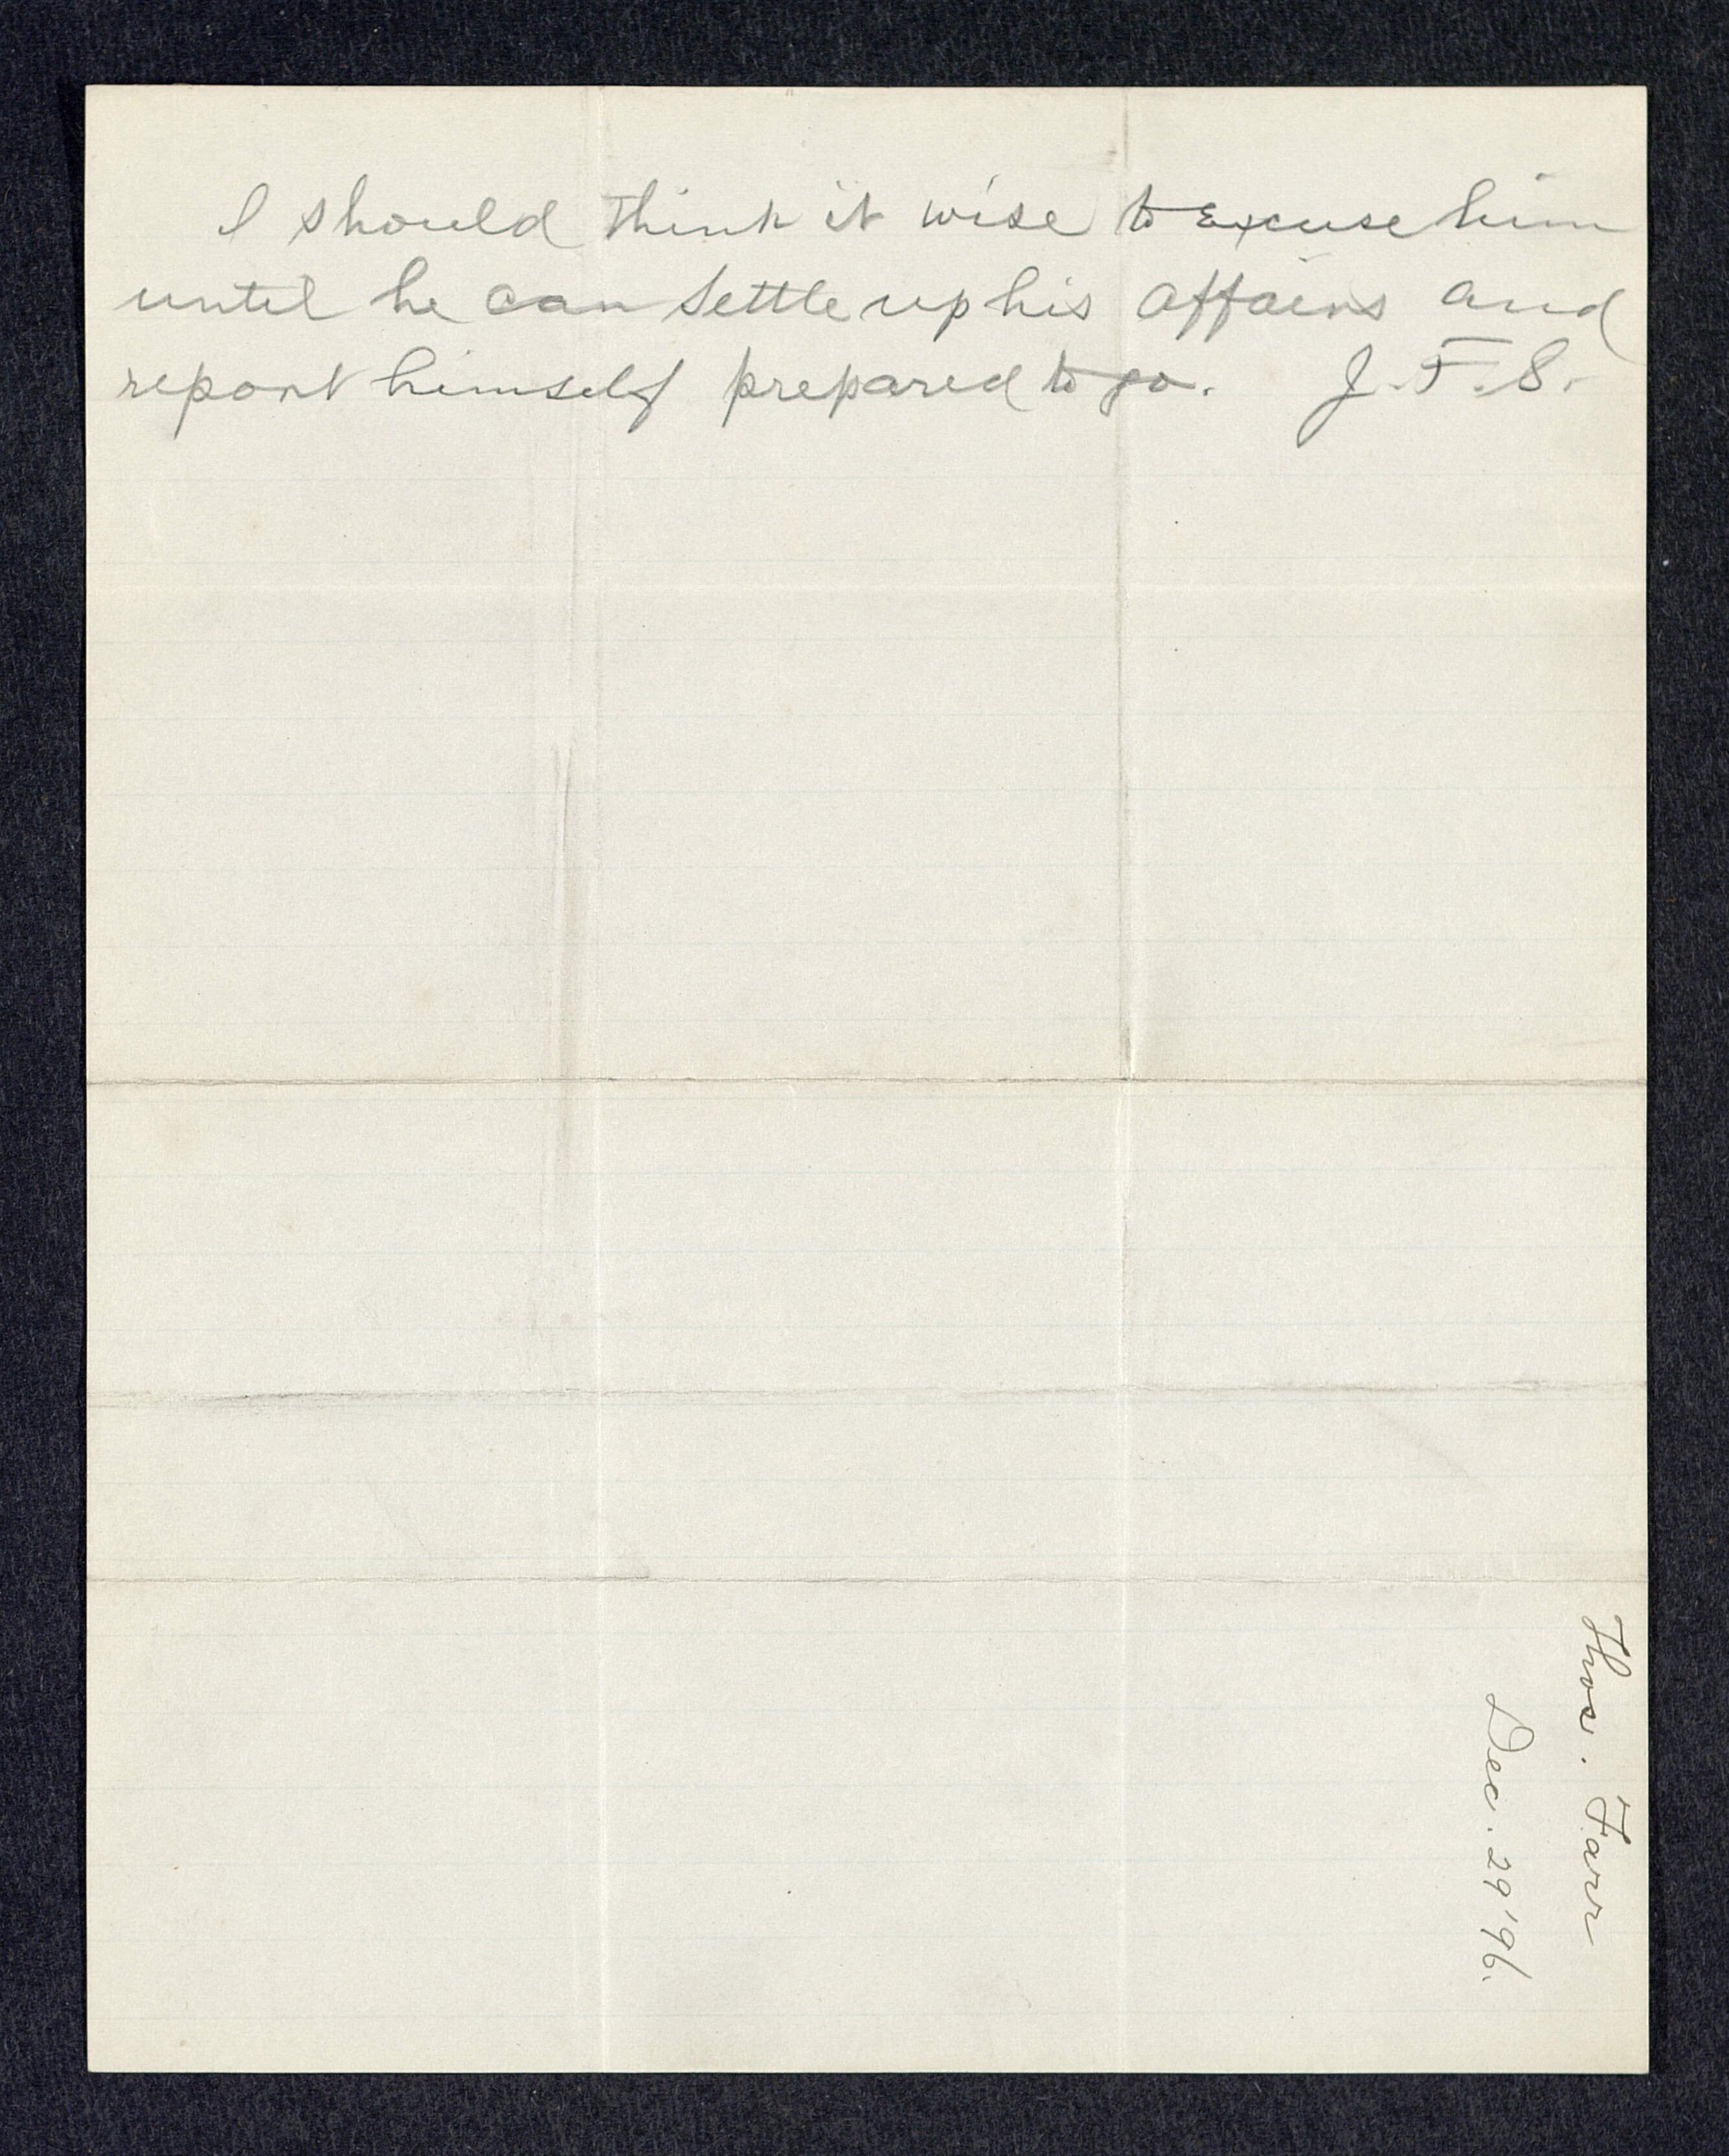 I should think it wise to excuse him
until he can settle up his affairs and
report himself prepared to go. J. F. S.
Thos. Farr
Dec. 29 '96.